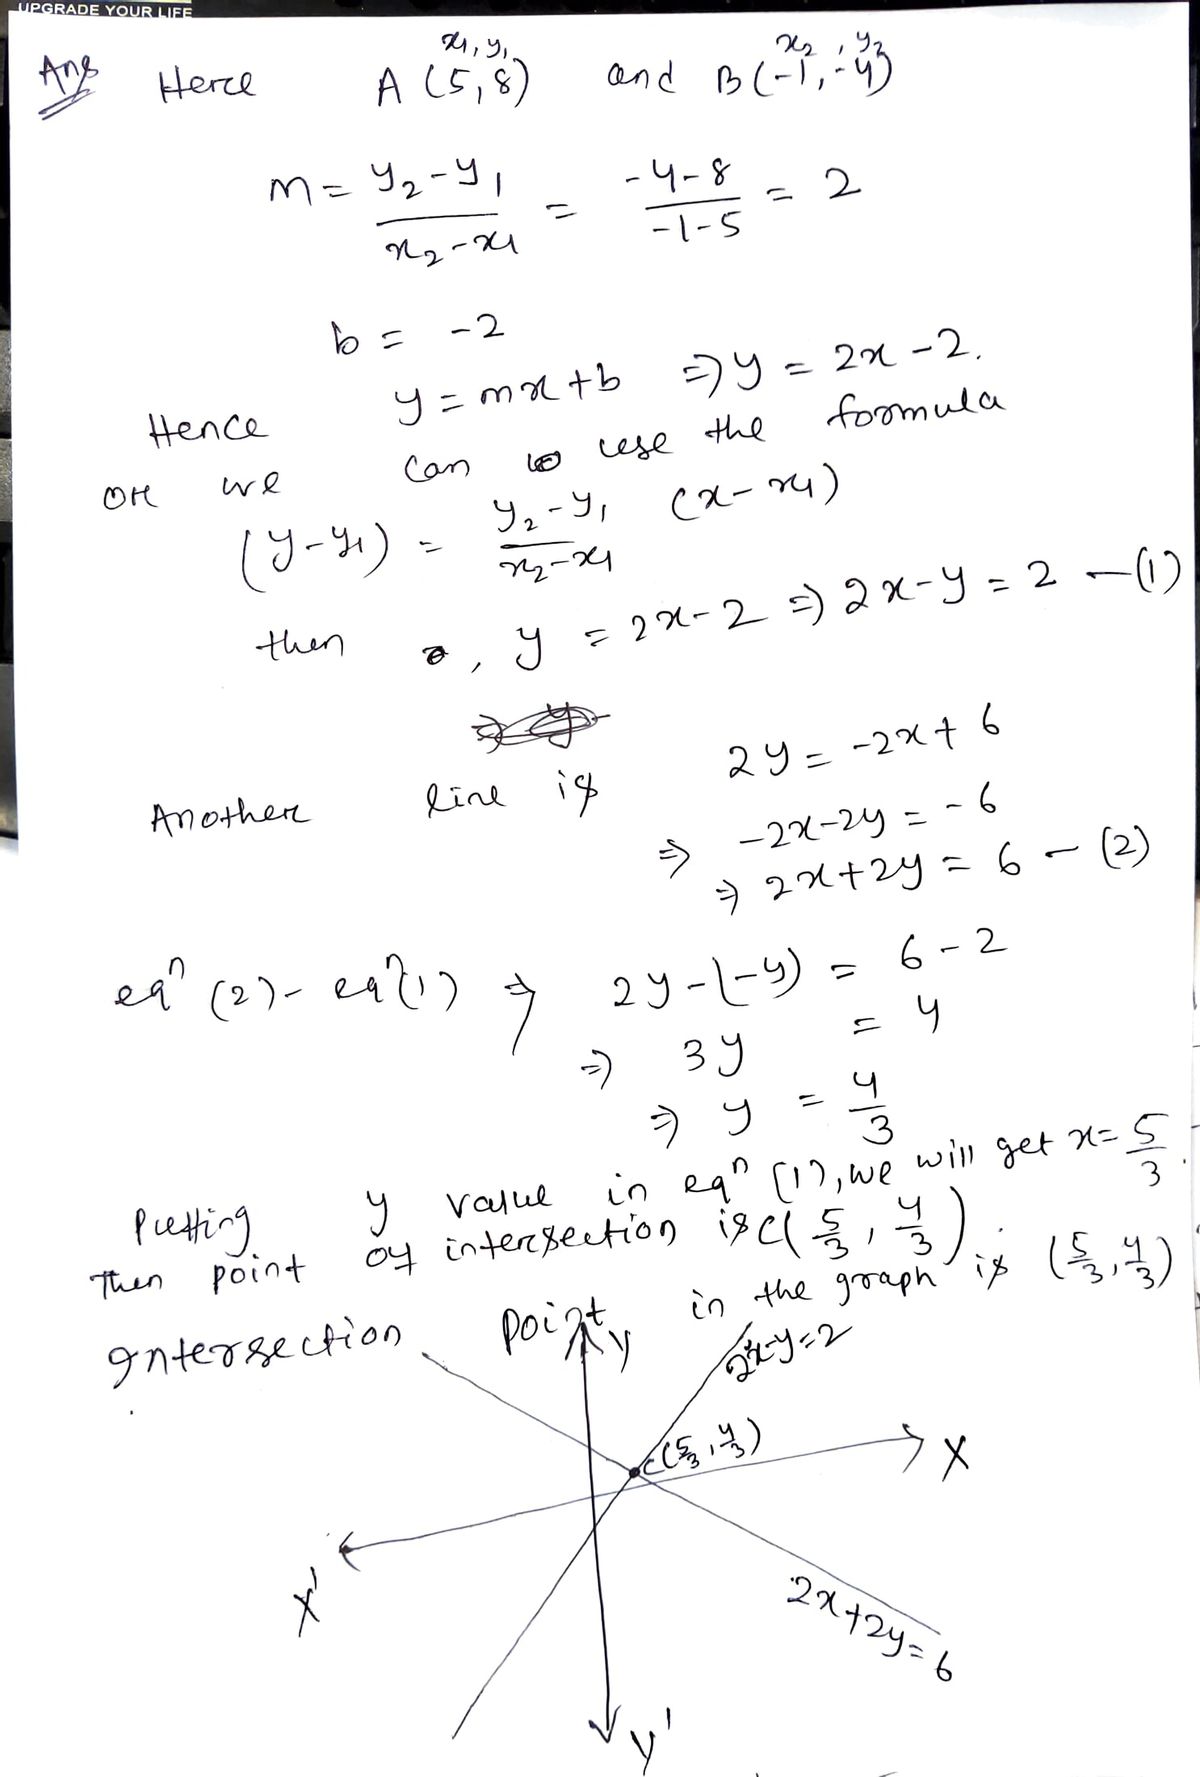 UPGRADE YOUR LIFE
x₁, y₁ x₂, y₂
Ans Here A (5,8) and B(-1,-4)
m = y₂-y₁/x₂-x₁ = -4-8/-1-5 = 2
b = -2
Hence y = mx+b ⇒ y = 2x-2.
OR we can use the formula
(y-y₁) = y₂-y₁/x₂-x₁ (x-x₁)
then , y = 2x-2 ⇒ 2x-y = 2 —(1)
Another line is 2y = -2x+6
⇒ -2x-2y = -6
⇒ 2x+2y = 6 — (2)
eqⁿ (2)- eqⁿ(1) ⇒ 2y-(-y) = 6-2
⇒ 3y = 4
⇒ y = 4/3
Putting y value in eqⁿ (1), we will get x = 5/3.
Then point of intersection is C(5/3, 4/3).
Intersection point in the graph is (5/3, 4/3)
Y
2x-y=2
C(5/3, 4/3)
X
X'
2x+2y=6
Y'